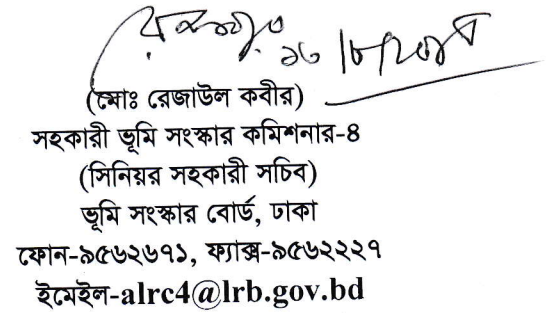 (মোঃ রেজাউল কবীর)
সহকারী ভূমি সংস্কার কমিশনার-৪
(সিনিয়র সহকারী সচিব)
ভূমি সংস্কার বোর্ড, ঢাকা
ফোন-৯৫৬২৬৭১, ফ্যাক্স-৯৫৬২২২৭
ইমেইল-alrc4@lrb.gov.bd